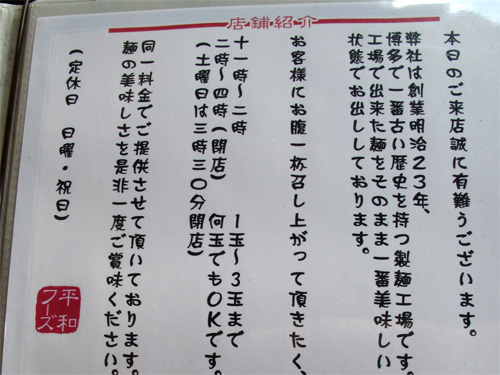 店舗紹介
本日のご来店誠に有難うございます。
弊社は創業明治23年、
博多で一番古い歴史を持つ製麺工場です。
工場で出来た麺をそのまま一番美味しい
状態でお出ししております。
お客様にお腹一杯召し上がって頂きたく、
十一時〜二時 1玉〜3玉まで
二時〜四時(閉店) 何玉でもOKです。
(土曜日は三時三〇分閉店)
同一料金でご提供させて頂いております。
麺の美味しさを是非一度ご賞味ください。
(定休日 日曜・祝日)
平和
フーズ